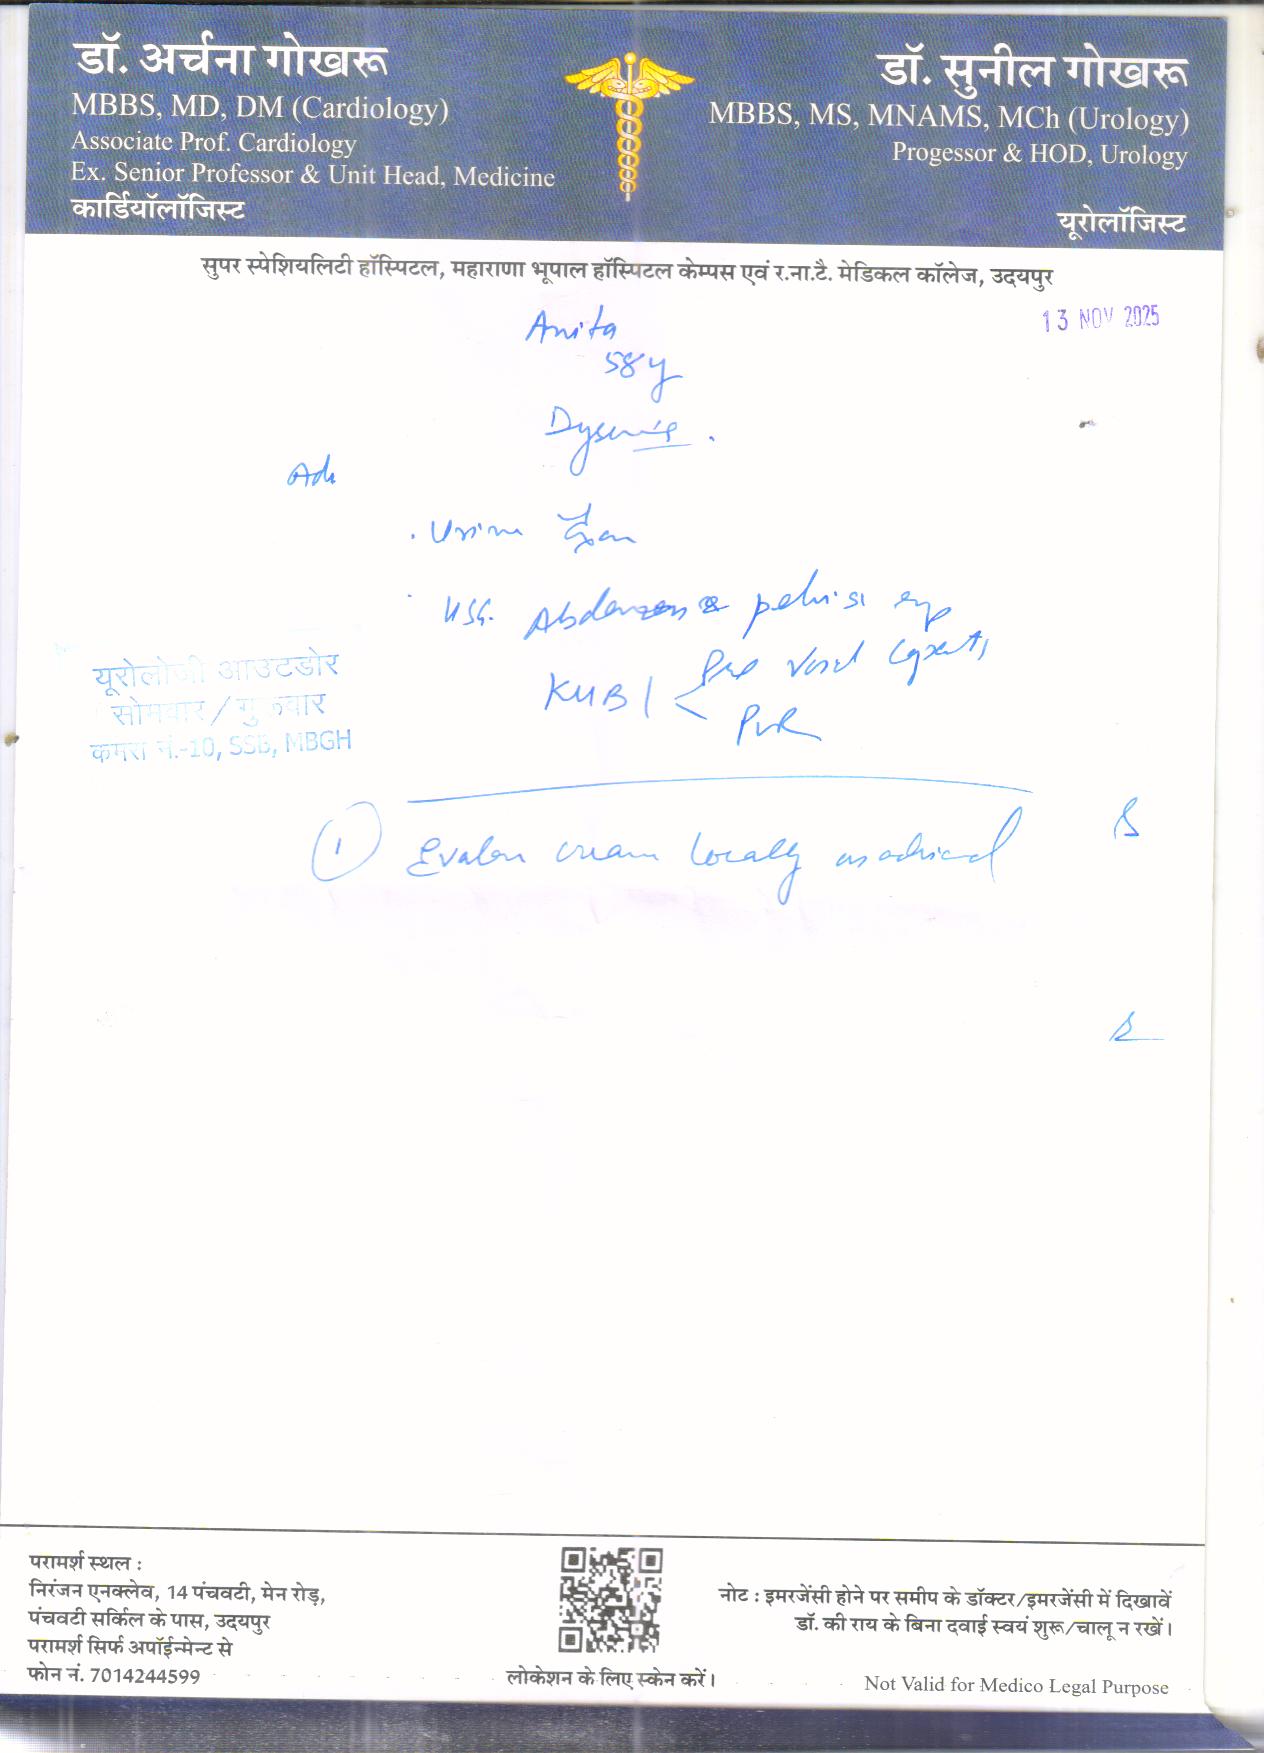 डॉ. अर्चना गोखरू
MBBS, MD, DM (Cardiology)
Associate Prof. Cardiology
Ex. Senior Professor & Unit Head, Medicine
कार्डियॉलॉजिस्ट
डॉ. सुनील गोखरू
MBBS, MS, MNAMS, MCh (Urology)
Progessor & HOD, Urology
यूरोलॉजिस्ट
सुपर स्पेशियलिटी हॉस्पिटल, महाराणा भूपाल हॉस्पिटल केम्पस एवं र.ना.टै. मेडिकल कॉलेज, उदयपुर
13 NOV 2025
Anita
58y
Urine
USG. Abdomen & pelvis
KUB
Pre void
PVR
यूरोलोजी आउटडोर
सोमवार / गुरूवार
कमरा नं.-10, SSB, MBGH
1 Evalon cream locally as advised
परामर्श स्थल :
निरंजन एनक्लेव, 14 पंचवटी, मेन रोड़,
पंचवटी सर्किल के पास, उदयपुर
परामर्श सिर्फ अपॉईन्मेन्ट से
फोन नं. 7014244599
लोकेशन के लिए स्केन करें।
नोट : इमरजेंसी होने पर समीप के डॉक्टर/इमरजेंसी में दिखावें
डॉ. की राय के बिना दवाई स्वयं शुरू/चालू न रखें।
Not Valid for Medico Legal Purpose